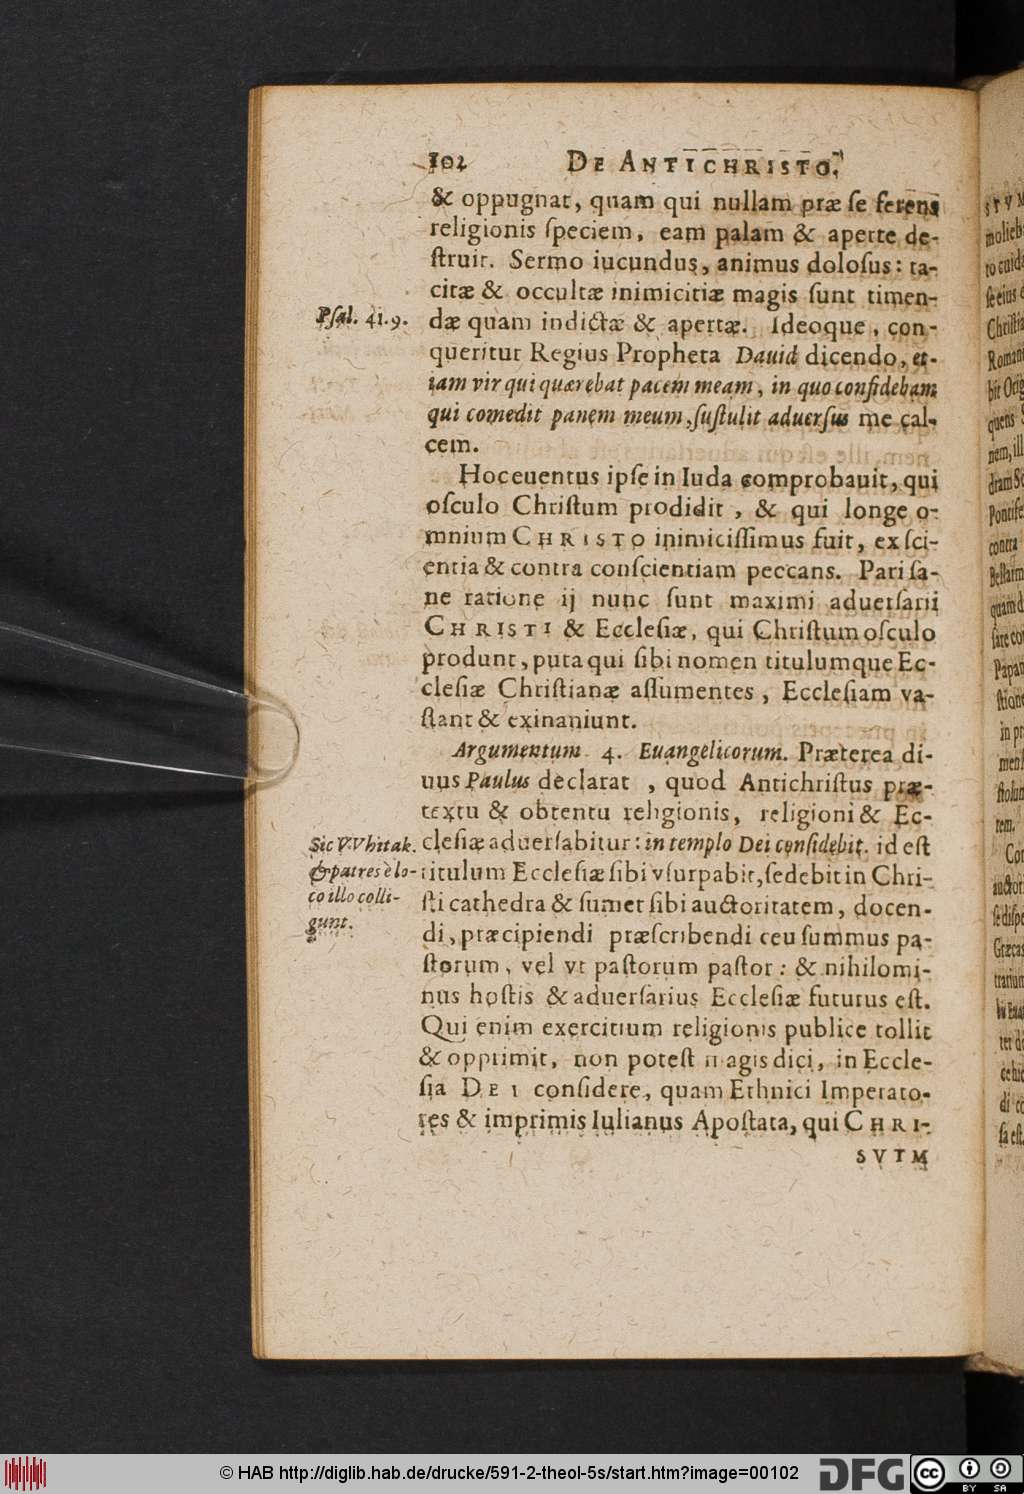 102 DE ANTICHRISTO,
& oppugnat, quam qui nullam præ ſe ferens
religionis ſpeciem, eam palam & aperte de-
ſtruit. Sermo iucundus, animus doloſus: ta-
citæ & occultæ inimicitiæ magis ſunt timen-
Pſal. 41.9.
dæ quam indictæ & apertæ. Ideoque, con-
queritur Regius Propheta Dauid dicendo, et-
iam vir qui quærebat pacem meam, in quo confidebam
qui comedit panem meum, ſuſtulit aduerſus me cal-
cem.
Hoc euentus ipſe in Iuda comprobauit, qui
oſculo Chriſtum prodidit, & qui longe o-
mnium CHRISTO inimiciſſimus fuit, ex ſci-
entia & contra conſcientiam peccans. Pari ſa-
ne ratione ij nunc ſunt maximi aduerſarii
CHRISTI & Eccleſiæ, qui Chriſtum oſculo
produnt, puta qui ſibi nomen titulumque Ec-
cleſiæ Chriſtianæ aſſumentes, Eccleſiam va-
ſtant & exinaniunt.
Argumentum 4. Euangelicorum. Præterea di-
uus Paulus declarat, quod Antichriſtus præ-
textu & obtentu religionis, religioni & Ec-
Sic VVhitak.
& patres è lo-
co illo colli-
gunt.
cleſiæ aduerſabitur: in templo Dei conſidebit. id eſt
titulum Eccleſiæ ſibi vſurpabit, ſedebit in Chri-
ſti cathedra & ſumet ſibi auctoritatem, docen-
di, præcipiendi præſcribendi ceu ſummus pa-
ſtorum, vel vt paſtorum paſtor: & nihilomi-
nus hoſtis & aduerſarius Eccleſiæ futurus eſt.
Qui enim exercitium religionis publice tollit
& opprimit, non poteſt magis dici, in Eccle-
ſia DEI conſidere, quam Ethnici Imperato-
res & imprimis Iulianus Apoſtata, qui CHRI-
SVTM
© HAB http://diglib.hab.de/drucke/591-2-theol-5s/start.htm?image=00102
DFG
cc BY SA